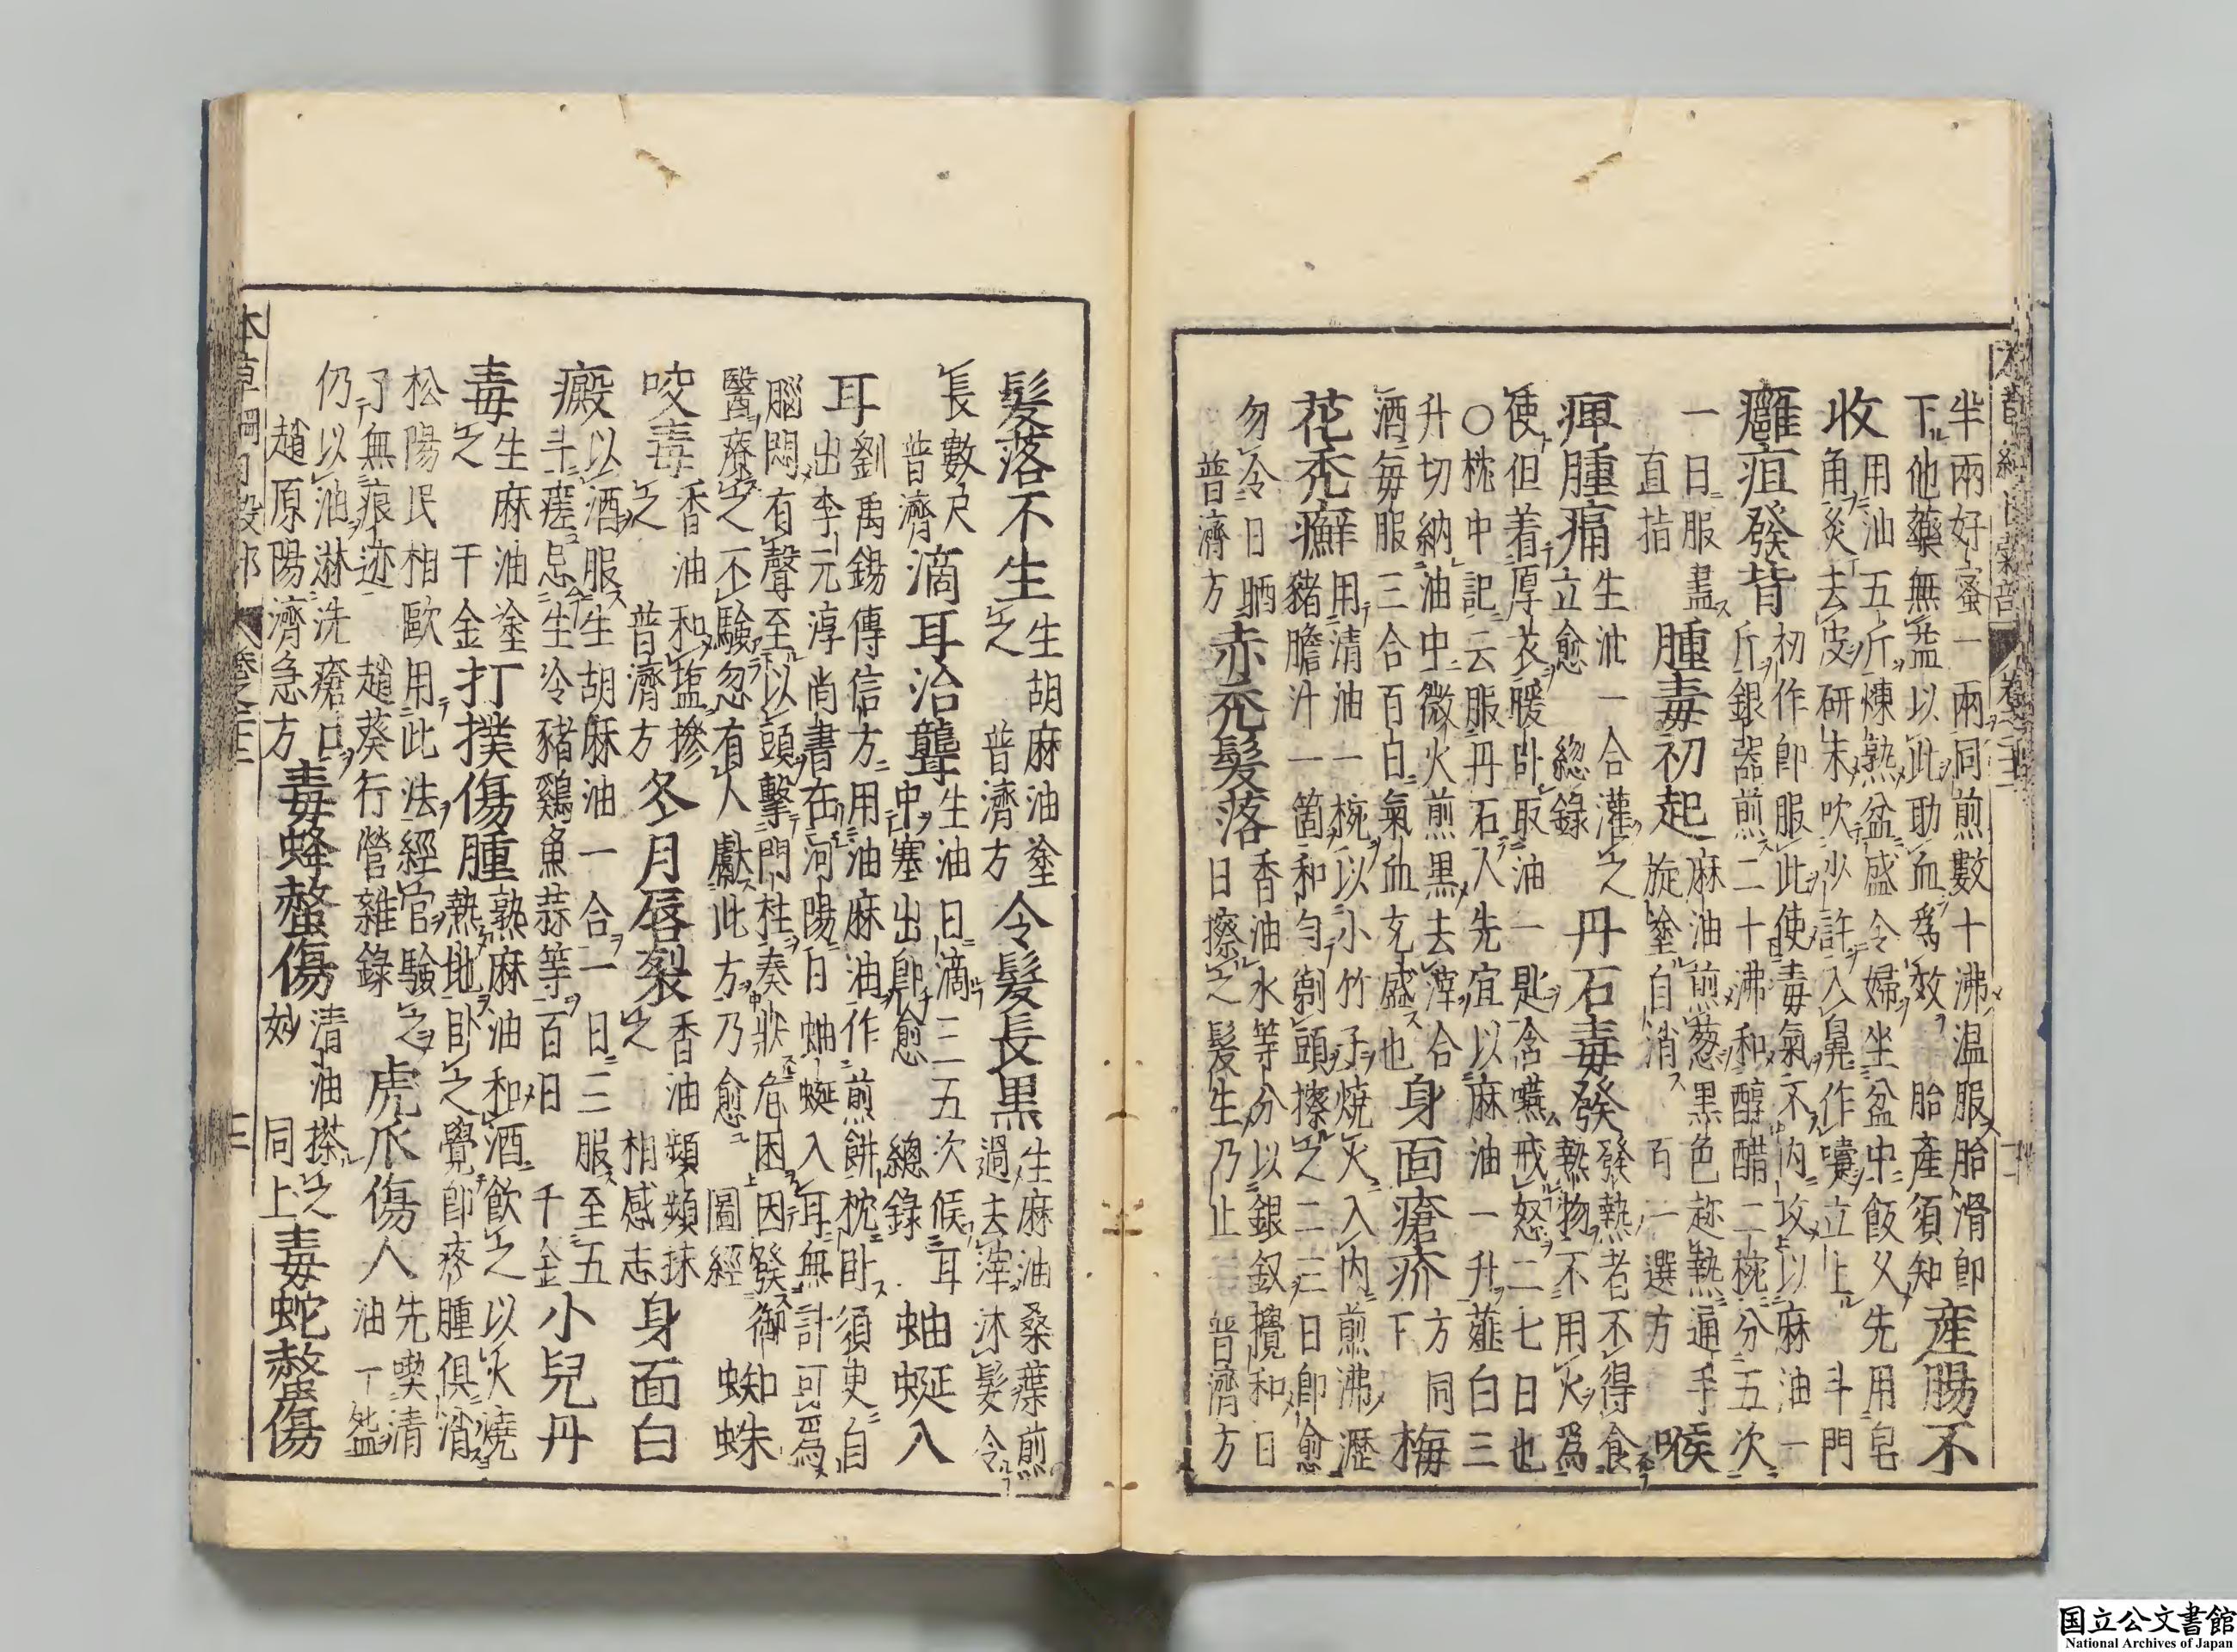 半兩好蜜一兩同煎數十沸温服胎滑即
下他藥無益以此助血爲效 胎產須知
產腸不
收
用油五斤煉熟盆盛令婦坐盆中飯久先用皂
角炙去皮研末吹少許入鼻作嚏立上 斗門
癰疽發背
初作即服此使毒氣不內攻以麻油一
斤銀器煎二十沸和醇醋二椀分五次
一日服盡
直指
腫毒初起
麻油煎葱黑色趂熱通手
旋塗自消 百一選方
喉
痺腫痛
生油一合灌之
立愈 總錄
丹石毒發
發熱者不得食
熱物不用火爲
使但着厚衣暖卧取油一匙含嚥戒怒二七日也
○枕中記云服丹石人先宜以麻油一升薤白三
升切納油中微火煎黑去滓合
酒每服三合百日氣血充盛也
身面瘡疥
方同
下
梅
花禿癬
用清油一椀以小竹子燒火入內煎沸瀝
豬膽汁一箇和勻剃頭擦之二三日即愈
勿令日晒
普濟方
赤禿髮落
香油水等分以銀釵攪和日
日擦之髮生乃止 普濟方
髮落不生
生胡麻油塗
之 普濟方
令髮長黑
生麻油桑葉煎
過去滓沐髮令
長數尺
普濟
滴耳治聾
生油日滴三五次候耳
中塞出即愈 總錄
蚰蜒入
耳
劉禹錫傳信方用油麻油作煎餅枕卧須臾自
出李元淳尚書在河陽日蚰蜒入耳無計可爲
腦悶有聲至以頭擊門柱奏狀危困因發御
醫療之不驗忽有人獻此方乃愈 圖經
蜘蛛
咬毒
香油和塩摻
之 普濟方
冬月唇裂
香油頻頻抹
之 相感志
身面白
癜
以酒服生胡麻油一合一日三服至五
斗瘥忌生冷豬鷄魚蒜等百日 千金
小兒丹
毒
生麻油塗
之 千金
打撲傷腫
熟麻油和酒飲之以火燒
熱地卧之覺即疼腫俱消
松陽民相歐用此法經官驗之
了無痕迹 趙葵行營雜錄
虎爪傷人
先喫清
油一盌
仍以油淋洗瘡口
趙原陽濟急方
毒蜂螫傷
清油搽之
妙 同上
毒蛇螫傷
国立公文書館
National Archives of Japan